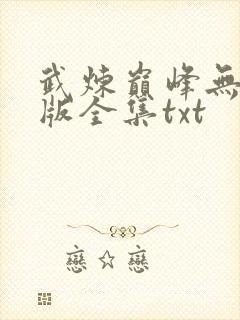 武煉巔峰無
版全集txt
戀☆戀